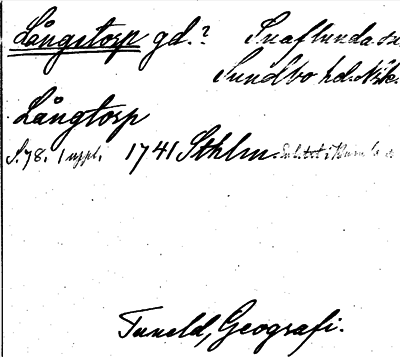 Långstorp gd.? Snaflunda sn
Sundbo hd. Nke.
Långtorp
S. 78. 1 uppl. 1741 Sthlm.
Tuneld, Geografi.